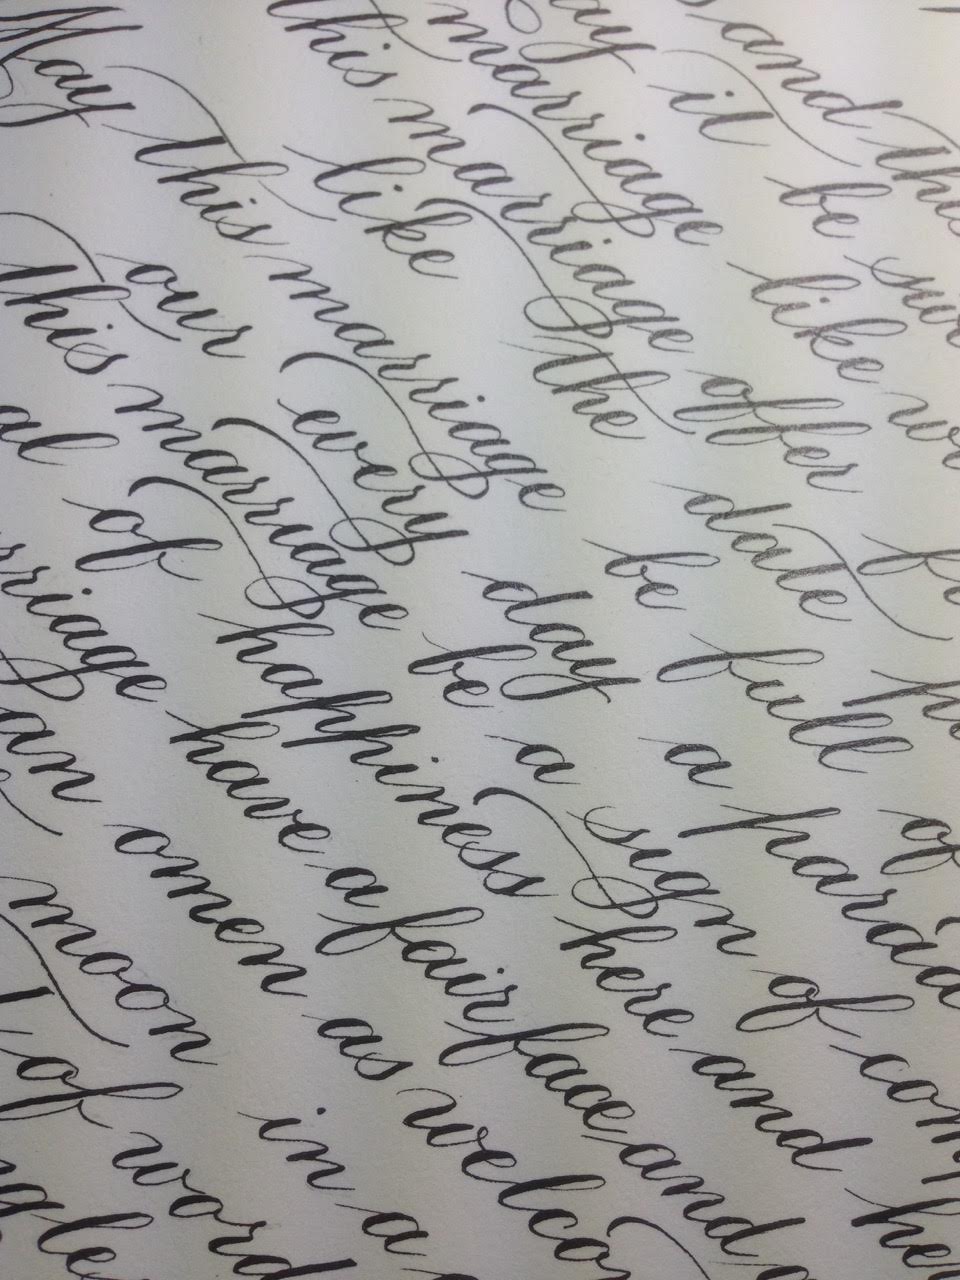 and this
ay it be sw
marriage like w
this marriage offer f
like the date
May this marriage be full of
our every day a parad
this marriage be a sign of com
al of happiness here and he
rriage have a fair face and
an omen as welco
moon in a
of word
gle